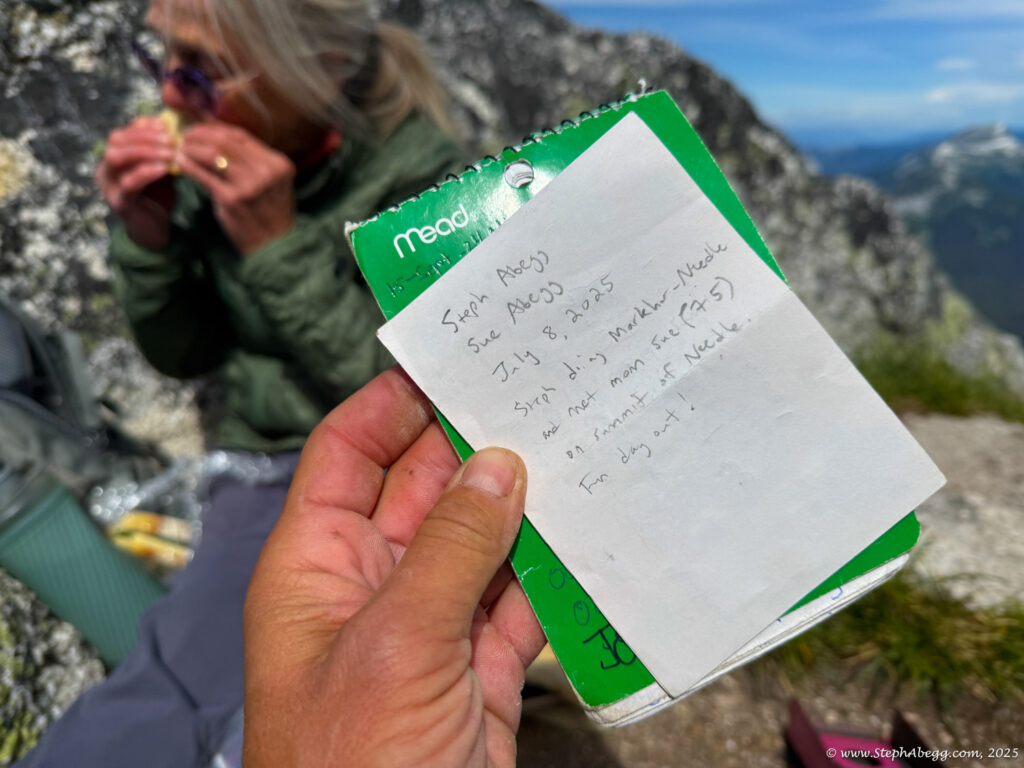 mead
Steph Abegg
Sue Abegg
July 8, 2025
Steph doing Markhor-Needle
and met mom Sue (75)
on summit of Needle.
Fun day out!
© www.StephAbegg.com, 2025